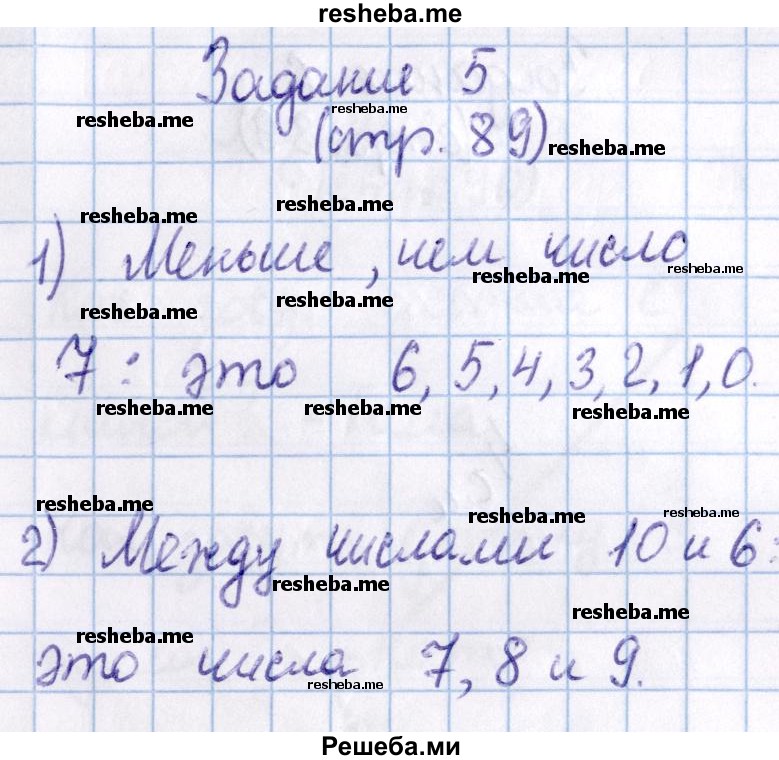 resheba.me
Задание 5
resheba.me
resheba.me
(стр. 89)
resheba.me
resheba.me
resheba.me
1) Меньше, чем число
resheba.me
resheba.me
resheba.me
resheba.me
7: это 6, 5, 4, 3, 2, 1, 0.
resheba.me
resheba.me
resheba.me
resheba.me
resheba.me
resheba.me
2) Между числами 10 и 6:
resheba.me
resheba.me
resheba.me
это числа 7, 8 и 9.
resheba.me
Решеба.ми